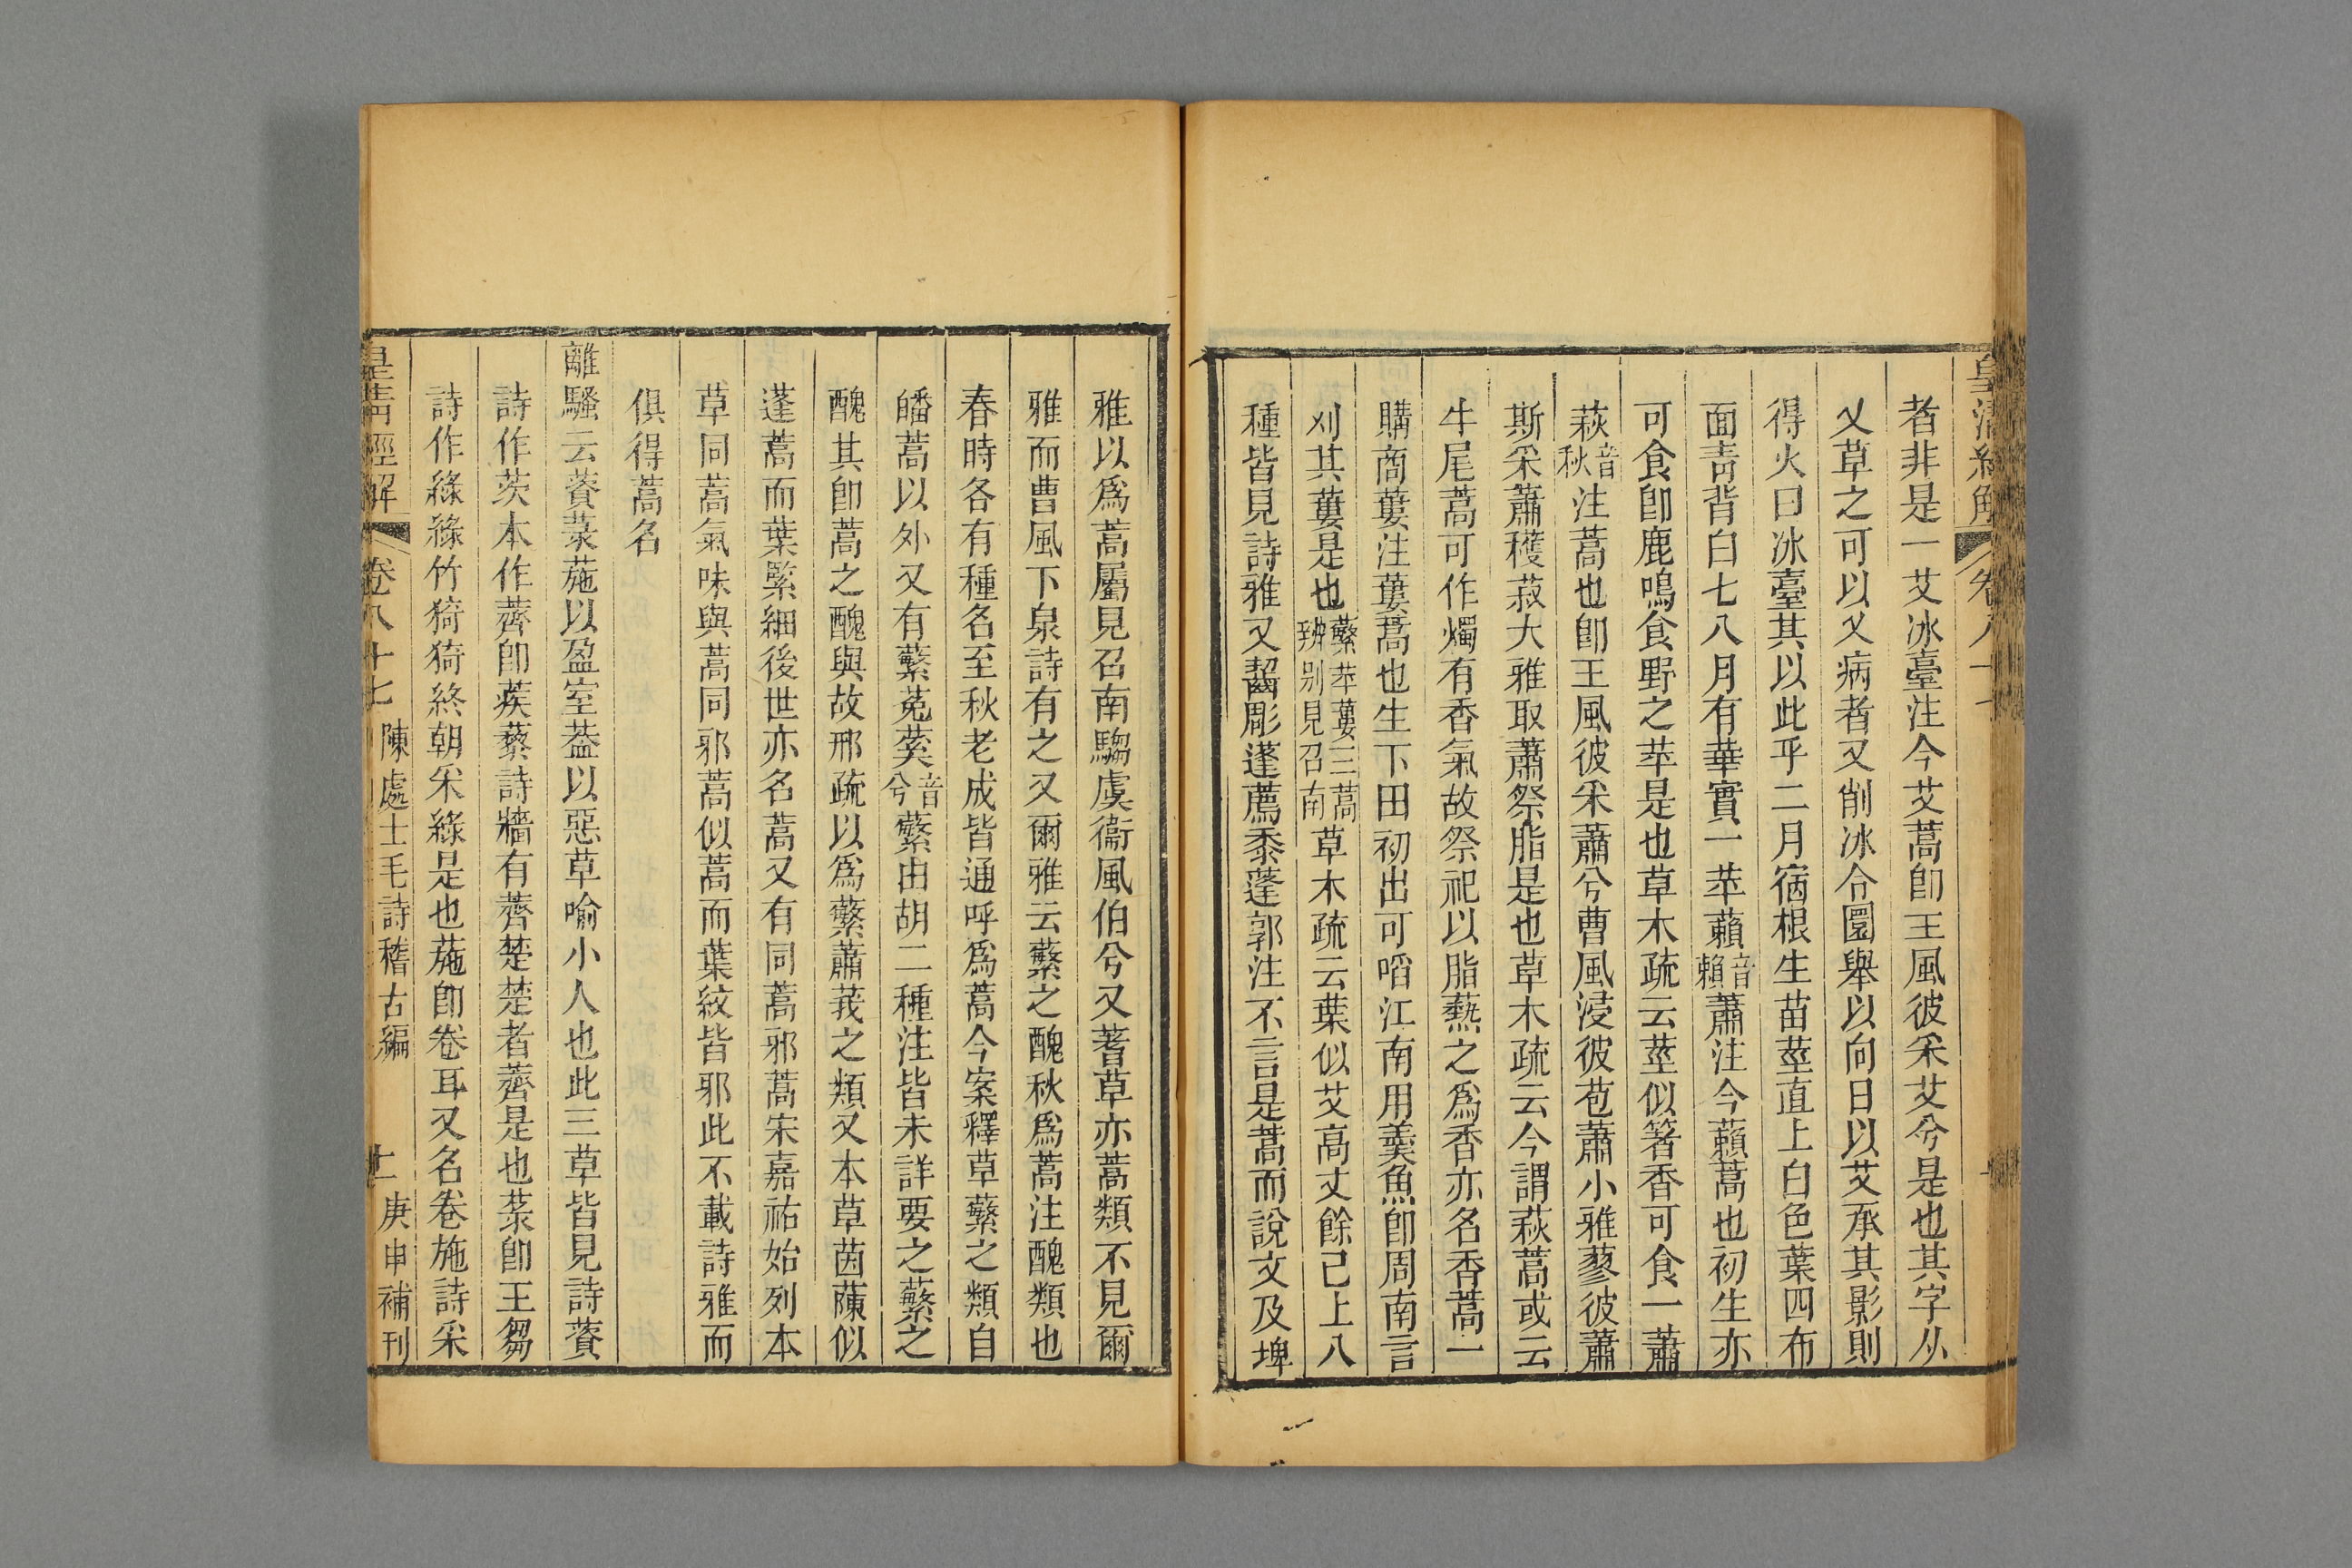 皇清經解 卷八十七
者非是一艾冰臺注今艾蒿卽王風彼采艾兮是也其字从
乂草之可以乂病者又削冰令圜舉以向日以艾承其影則
得火曰冰臺其以此乎二月宿根生苗莖直上白色葉四布
面靑背白七八月有華實一苹藾音賴蕭注今藾蒿也初生亦
可食卽鹿鳴食野之苹是也草木疏云莖似箸香可食一蕭
萩音秋注蒿也卽王風彼采蕭兮曹風浸彼苞蕭小雅蓼彼蕭
斯采蕭穫菽大雅取蕭祭脂是也草木疏云今謂萩蒿或云
牛尾蒿可作燭有香氣故祭祀以脂爇之爲香亦名香蒿一
購啇蔞注蔞蒿也生下田初出可啗江南用羹魚卽周南言
刈其蔞是也蘩苹蔞三蒿辨别見召南草木疏云葉似艾高丈餘已上八
種皆見詩雅又齧彫蓬薦黍蓬郭注不言是蒿而說文及埤
雅以爲蒿屬見召南騶虞衞風伯兮又蓍草亦蒿類不見爾
雅而曹風下泉詩有之又爾雅云蘩之醜秋爲蒿注醜類也
春時各有種名至秋老成皆通呼爲蒿今案釋草蘩之類自
皤蒿以外又有蘩菟蒵音兮蘩由胡二種注皆未詳要之蘩之
醜其卽蒿之醜與故邢疏以爲蘩蕭莪之類又本草茵蔯似
蓬蒿而葉緊細後世亦名蒿又有同蒿邪蒿宋嘉祐始列本
草同蒿氣味與蒿同邪蒿似蒿而葉紋皆邪此不載詩雅而
俱得蒿名
離騷云薋菉葹以盈室葢以惡草喻小人也此三草皆見詩薋
詩作茨本作薺卽蒺藜詩牆有薺楚楚者薺是也菉卽王芻
詩作綠綠竹猗猗終朝采綠是也葹卽卷耳又名卷施詩采
皇淸經解 卷八十七 陳處士毛詩稽古編 十一 庚申補刊